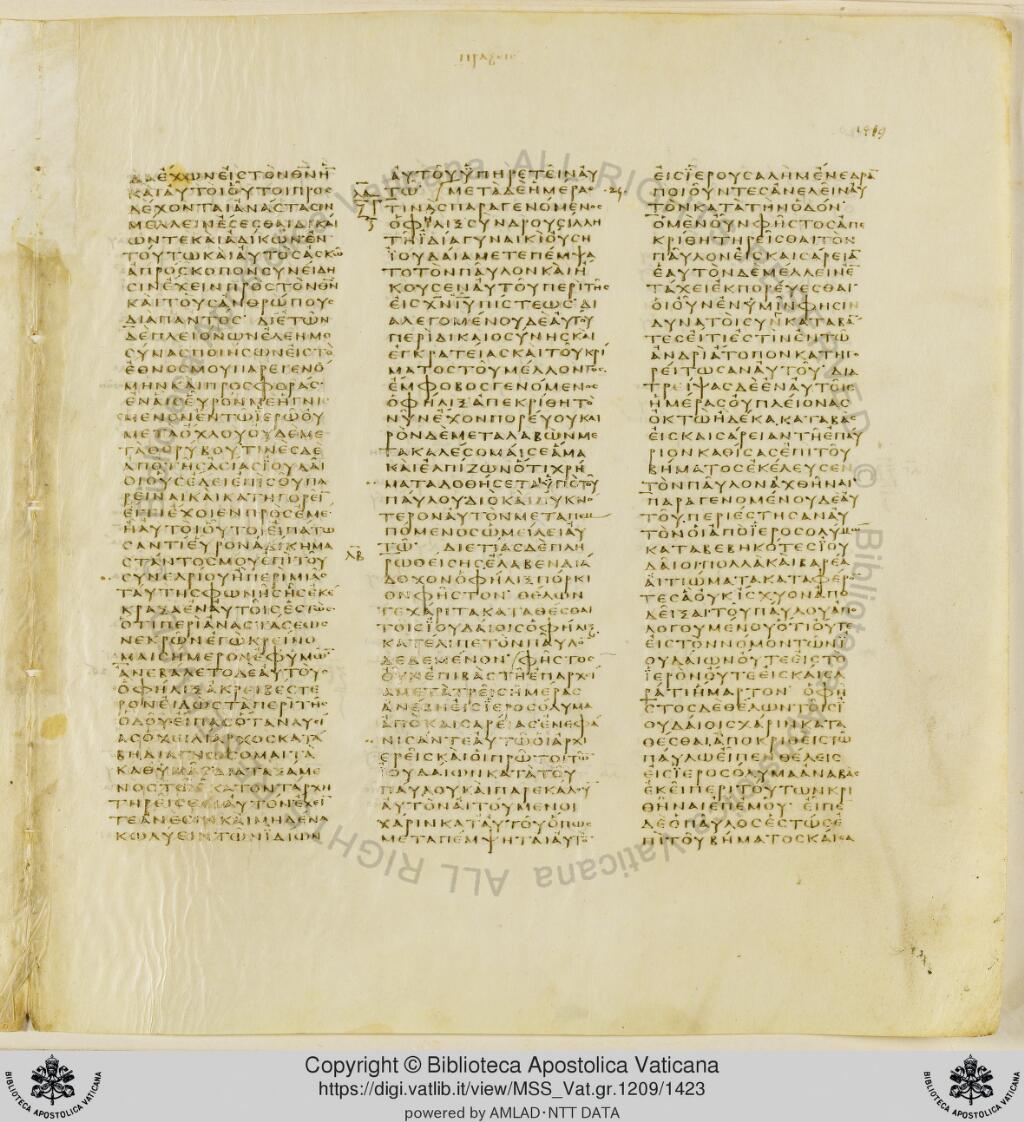 ΔΑΕΧΩΝΕΙϹΤΟΝΘ̅Ν̅Η̅
ΚΑΙΑΥΤΟΙΟΥΤΟΙΠΡΟϹ
ΔΕΧΟΝΤΑΙΑΝΑϹΤΑϹΙΝ
ΜΕΛΛΕΙΝΕϹΕϹΘΑΙΔΙΚΑΙ
ΩΝΤΕΚΑΙΑΔΙΚΩΝ·ΕΝ
ΤΟΥΤΩΚΑΙΑΥΤΟϹΑϹΚΩ
ΑΠΡΟϹΚΟΠΟΝϹΥΝΕΙΔΗ
ϹΙΝΕΧΕΙΝΠΡΟϹΤΟΝΘ̅Ν̅
ΚΑΙΤΟΥϹΑΝΘΡΩΠΟΥϹ
ΔΙΑΠΑΝΤΟϹ· ΔΙΕΤΩΝ
ΔΕΠΛΕΙΟΝΩΝΕΛΕΗΜΟ
ϹΥΝΑϹΠΟΙΗϹΩΝΕΙϹΤΟ̅
ΕΘΝΟϹΜΟΥΠΑΡΕΓΕΝΟ
ΜΗΝΚΑΙΠΡΟϹΦΟΡΑϹ·
ΕΝΑΙϹΕΥΡΟΝΜΕΗΓΝΙϹ
ΜΕΝΟΝΕΝΤΩΙΕΡΩΟΥ
ΜΕΤΑΟΧΛΟΥΟΥΔΕΜΕ
ΤΑΘΟΡΥΒΟΥΤΙΝΕϹΔΕ
ΑΠΟΤΗϹΑϹΙΑϹΙΟΥΔΑΙ
ΟΙΟΥϹΕΔΕΙΕΠΙϹΟΥΠΑ
ΡΕΙΝΑΙΚΑΙΚΑΤΗΓΟΡΕΙ̅
ΕΙΤΙΕΧΟΙΕΝΠΡΟϹΕΜΕ·
ΗΑΥΤΟΙΟΥΤΟΙΕΙΠΑΤΩ
ϹΑΝΤΙΕΥΡΟΝΑΔΙΚΗΜΑ
ϹΤΑΝΤΟϹΜΟΥΕΠΙΤΟΥ
ϹΥΝΕΔΡΙΟΥΗΠΕΡΙΜΙΑϹ
ΤΑΥΤΗϹΦΩΝΗϹΗϹΕΚΕ
ΚΡΑΞΑΕΝΑΥΤΟΙϹΕϹΤΩϹ
ΟΤΙΠΕΡΙΑΝΑϹΤΑϹΕΩϹ
ΝΕΚΡΩΝΕΓΩΚΡΕΙΝΟ
ΜΑΙϹΗΜΕΡΟΝΕΦΥΜΩ̅
ΑΝΕΒΑΛΕΤΟΔΕΑΥΤΟΥϹ
ΟΦΗΛΙΞΑΚΡΕΙΒΕϹΤΕ
ΡΟΝΕΙΔΩϹΤΑΠΕΡΙΤΗϹ
ΟΔΟΥΕΙΠΑϹΟΤΑΝΛΥϹΙ
ΑϹΟΧΕΙΛΙΑΡΧΟϹΚΑΤΑ
ΒΗΔΙΑΓΝΩϹΟΜΑΙΤΑ
ΚΑΘΥΜΑϹΔΙΑΤΑΞΑΜΕ
ΝΟϹΤΩΕΚΑΤΟΝΤΑΡΧΗ
ΤΗΡΕΙϹΘΑΙΑΥΤΟΝΕΧΕΙ̅
ΤΕΑΝΕϹΙΝΚΑΙΜΗΔΕΝΑ
ΚΩΛΥΕΙΝΤΩΝΙΔΙΩΝ
ΑΥΤΟΥΥΠΗΡΕΤΕΙΝΑΥ
ΛΑ ΤΩ· ΜΕΤΑΔΕΗΜΕΡΑϹ
ΤΙΝΑϹΠΑΡΑΓΕΝΟΜΕΝΟϹ
ΟΦΗΛΙΞϹΥΝΔΡΟΥϹΙΛΛΗ
ΤΗΙΔΙΑΓΥΝΑΙΚΙΟΥϹΗ
ΙΟΥΔΑΙΑΜΕΤΕΠΕΜΨΑ
ΤΟΤΟΝΠΑΥΛΟΝΚΑΙΗ
ΚΟΥϹΕΝΑΥΤΟΥΠΕΡΙΤΗϹ
ΕΙϹΧ̅Ν̅Ι̅Ν̅ΠΙϹΤΕΩϹ· ΔΙ
ΑΛΕΓΟΜΕΝΟΥΔΕΑΥΤΟΥ
ΠΕΡΙΔΙΚΑΙΟϹΥΝΗϹΚΑΙ
ΕΓΚΡΑΤΕΙΑϹΚΑΙΤΟΥΚΡΙ
ΜΑΤΟϹΤΟΥΜΕΛΛΟΝΤΟϹ
ΕΜΦΟΒΟϹΓΕΝΟΜΕΝΟϹ
ΟΦΗΛΙΞΑΠΕΚΡΙΘΗΤΟ
ΝΥΝΕΧΟΝΠΟΡΕΥΟΥΚΑΙ
ΡΟΝΔΕΜΕΤΑΛΑΒΩΝΜΕ
ΤΑΚΑΛΕϹΟΜΑΙϹΕΑΜΑ
ΚΑΙΕΛΠΙΖΩΝΟΤΙΧΡΗ
ΜΑΤΑΔΟΘΗϹΕΤΑΙΥΠΟΤΟΥ
ΠΑΥΛΟΥΔΙΟΚΑΙΠΥΚΝΟ
ΤΕΡΟΝΑΥΤΟΝΜΕΤΑΠΕΜ
ΠΟΜΕΝΟϹΩΜΕΙΛΕΙΑΥ
ΛΒ ΤΩ· ΔΙΕΤΙΑϹΔΕΠΛΗ
ΡΩΘΕΙϹΗϹΕΛΑΒΕΝΔΙΑ
ΔΟΧΟΝΟΦΗΛΙΞΠΟΡΚΙ
ΟΝΦΗϹΤΟΝ· ΘΕΛΩΝ
ΤΕΧΑΡΙΤΑΚΑΤΑΘΕϹΘΑΙ
ΤΟΙϹΙΟΥΔΑΙΟΙϹΟΦΗΛΙΞ
ΚΑΤΕΛΙΠΕΤΟΝΠΑΥΛΟ̅
ΔΕΔΕΜΕΝΟΝ· ΦΗϹΤΟϹ
ΟΥΝΕΠΙΒΑϹΤΗΕΠΑΡΧΕΙ
ΑΜΕΤΑΤΡΕΙϹΗΜΕΡΑϹ
ΑΝΕΒΗΕΙϹΙΕΡΟϹΟΛΥΜΑ
ΑΠΟΚΑΙϹΑΡΕΙΑϹΕΝΕΦΑ
ΝΙϹΑΝΤΕΑΥΤΩΟΙΑΡΧΙ
ΕΡΕΙϹΚΑΙΟΙΠΡΩΤΟΙΤΩ̅
ΙΟΥΔΑΙΩΝΚΑΤΑΤΟΥ
ΠΑΥΛΟΥΚΑΙΠΑΡΕΚΑΛΟΥ̅
ΑΥΤΟΝΑΙΤΟΥΜΕΝΟΙ
ΧΑΡΙΝΚΑΤΑΥΤΟΥΟΠΩϹ
ΜΕΤΑΠΕΜΨΗΤΑΙΑΥΤΟ̅
ΕΙϹΙΕΡΟΥϹΑΛΗΜΕΝΕΔΡΑ̅
ΠΟΙΟΥΝΤΕϹΑΝΕΛΕΙΝΑΥ
ΤΟΝΚΑΤΑΤΗΝΟΔΟΝ·
ΟΜΕΝΟΥΝΦΗϹΤΟϹΑΠΕ
ΚΡΙΘΗΤΗΡΕΙϹΘΑΙΤΟΝ
ΠΑΥΛΟΝΕΙϹΚΑΙϹΑΡΕΙΑ̅
ΕΑΥΤΟΝΔΕΜΕΛΛΕΙΝΕ̅
ΤΑΧΕΙΕΚΠΟΡΕΥΕϹΘΑΙ·
ΟΙΟΥΝΕΝΥΜΙΝΦΗϹΙΝ
ΔΥΝΑΤΟΙϹΥΝΚΑΤΑΒΑ̅
ΤΕϹΕΙΤΙΕϹΤΙΝΕΝΤΩ
ΑΝΔΡΙΑΤΟΠΟΝΚΑΤΗΓΟ
ΡΕΙΤΩϹΑΝΑΥΤΟΥ· ΔΙΑ
ΤΡΕΙΨΑϹΔΕΕΝΑΥΤΟΙϹ
ΗΜΕΡΑϹΟΥΠΛΕΙΟΝΑϹ
ΟΚΤΩΗΔΕΚΑ,ΚΑΤΑΒΑϹ
ΕΙϹΚΑΙϹΑΡΕΙΑΝΤΗΕΠΑΥ
ΡΙΟΝΚΑΘΙϹΑϹΕΠΙΤΟΥ
ΒΗΜΑΤΟϹΕΚΕΛΕΥϹΕΝ
ΤΟΝΠΑΥΛΟΝΑΧΘΗΝΑΙ·
ΠΑΡΑΓΕΝΟΜΕΝΟΥΔΕΑΥ
ΤΟΥ,ΠΕΡΙΕϹΤΗϹΑΝΑΥ
ΤΟΝΟΙΑΠΟΙΕΡΟϹΟΛΥΜΩ̅
ΚΑΤΑΒΕΒΗΚΟΤΕϹΙΟΥ
ΔΑΙΟΙΠΟΛΛΑΚΑΙΒΑΡΕΑ
ΑΙΤΙΩΜΑΤΑΚΑΤΑΦΕΡΟ̅
ΤΕϹΑΟΥΚΙϹΧΥΟΝΑΠΟ
ΔΕΙΞΑΙΤΟΥΠΑΥΛΟΥΑΠΟ
ΛΟΓΟΥΜΕΝΟΥΟΤΙΟΥΤΕ
ΕΙϹΤΟΝΝΟΜΟΝΤΩΝΙ
ΟΥΔΑΙΩΝΟΥΤΕΕΙϹΤΟ
ΙΕΡΟΝΟΥΤΕΕΙϹΚΑΙϹΑ
ΡΑΤΙΗΜΑΡΤΟΝ· ΟΦΗ
ϹΤΟϹΔΕΘΕΛΩΝΤΟΙϹΙ
ΟΥΔΑΙΟΙϹΧΑΡΙΝΚΑΤΑ
ΘΕϹΘΑΙ,ΑΠΟΚΡΙΘΕΙϹΤΩ
ΠΑΥΛΩΕΙΠΕΝΘΕΛΕΙϹ
ΕΙϹΙΕΡΟϹΟΛΥΜΑΑΝΑΒΑϹ
ΕΚΕΙΠΕΡΙΤΟΥΤΩΝΚΡΙ
ΘΗΝΑΙΕΠΕΜΟΥ· ΕΙΠΕ
ΔΕΟΠΑΥΛΟϹΕϹΤΩϹΕ
ΠΙΤΟΥΒΗΜΑΤΟϹΚΑΙϹΑ
Copyright © Biblioteca Apostolica Vaticana
https://digi.vatlib.it/view/MSS_Vat.gr.1209/1423
powered by AMLAD·NTT DATA
BIBLIOTECA APOSTOLICA VATICANA
BIBLIOTECA APOSTOLICA VATICANA